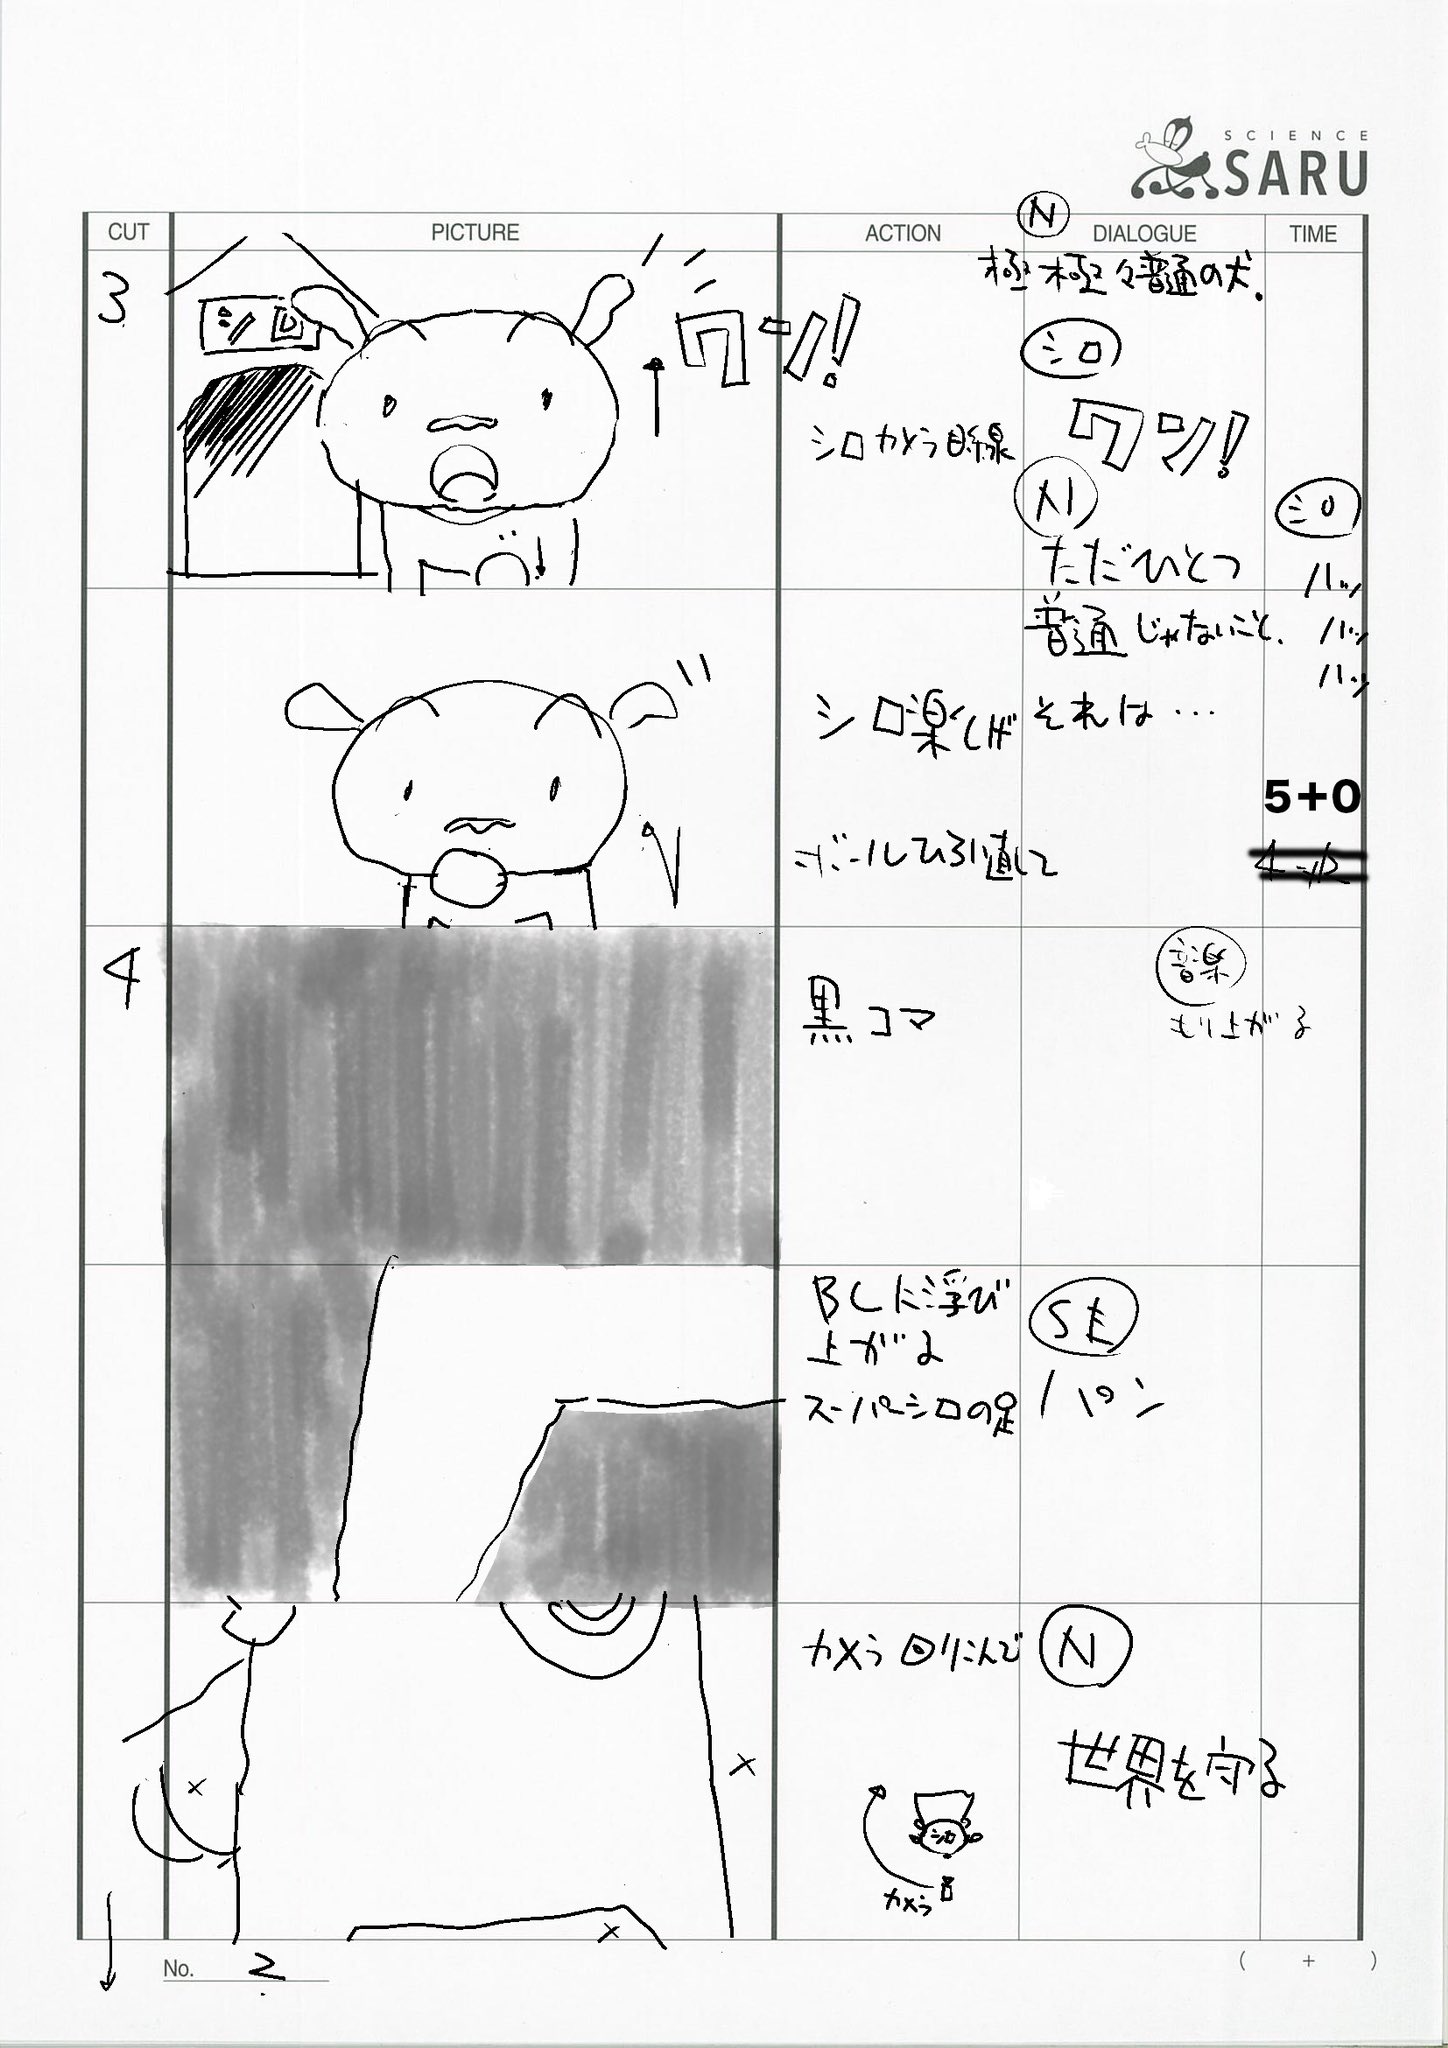 SCIENCE
SARU
CUT
PICTURE
ACTION
DIALOGUE
TIME
3
シロ
ワン!
シロカメラ目線
N
極極々普通の犬.
シロ
ワン!
N
ただひとつ
普通じゃないこと.
それは…
シロ
ハッ
ハッ
ハッ
シロ楽しげ
ボールひろい直して
5+0
4
黒コマ
音楽
もり上がる
BLに浮び
上がる
スーパーシロの足
SE
パン
カメラ回りこんで
シロ
カメラ
N
世界を守る
No. 2
( + )